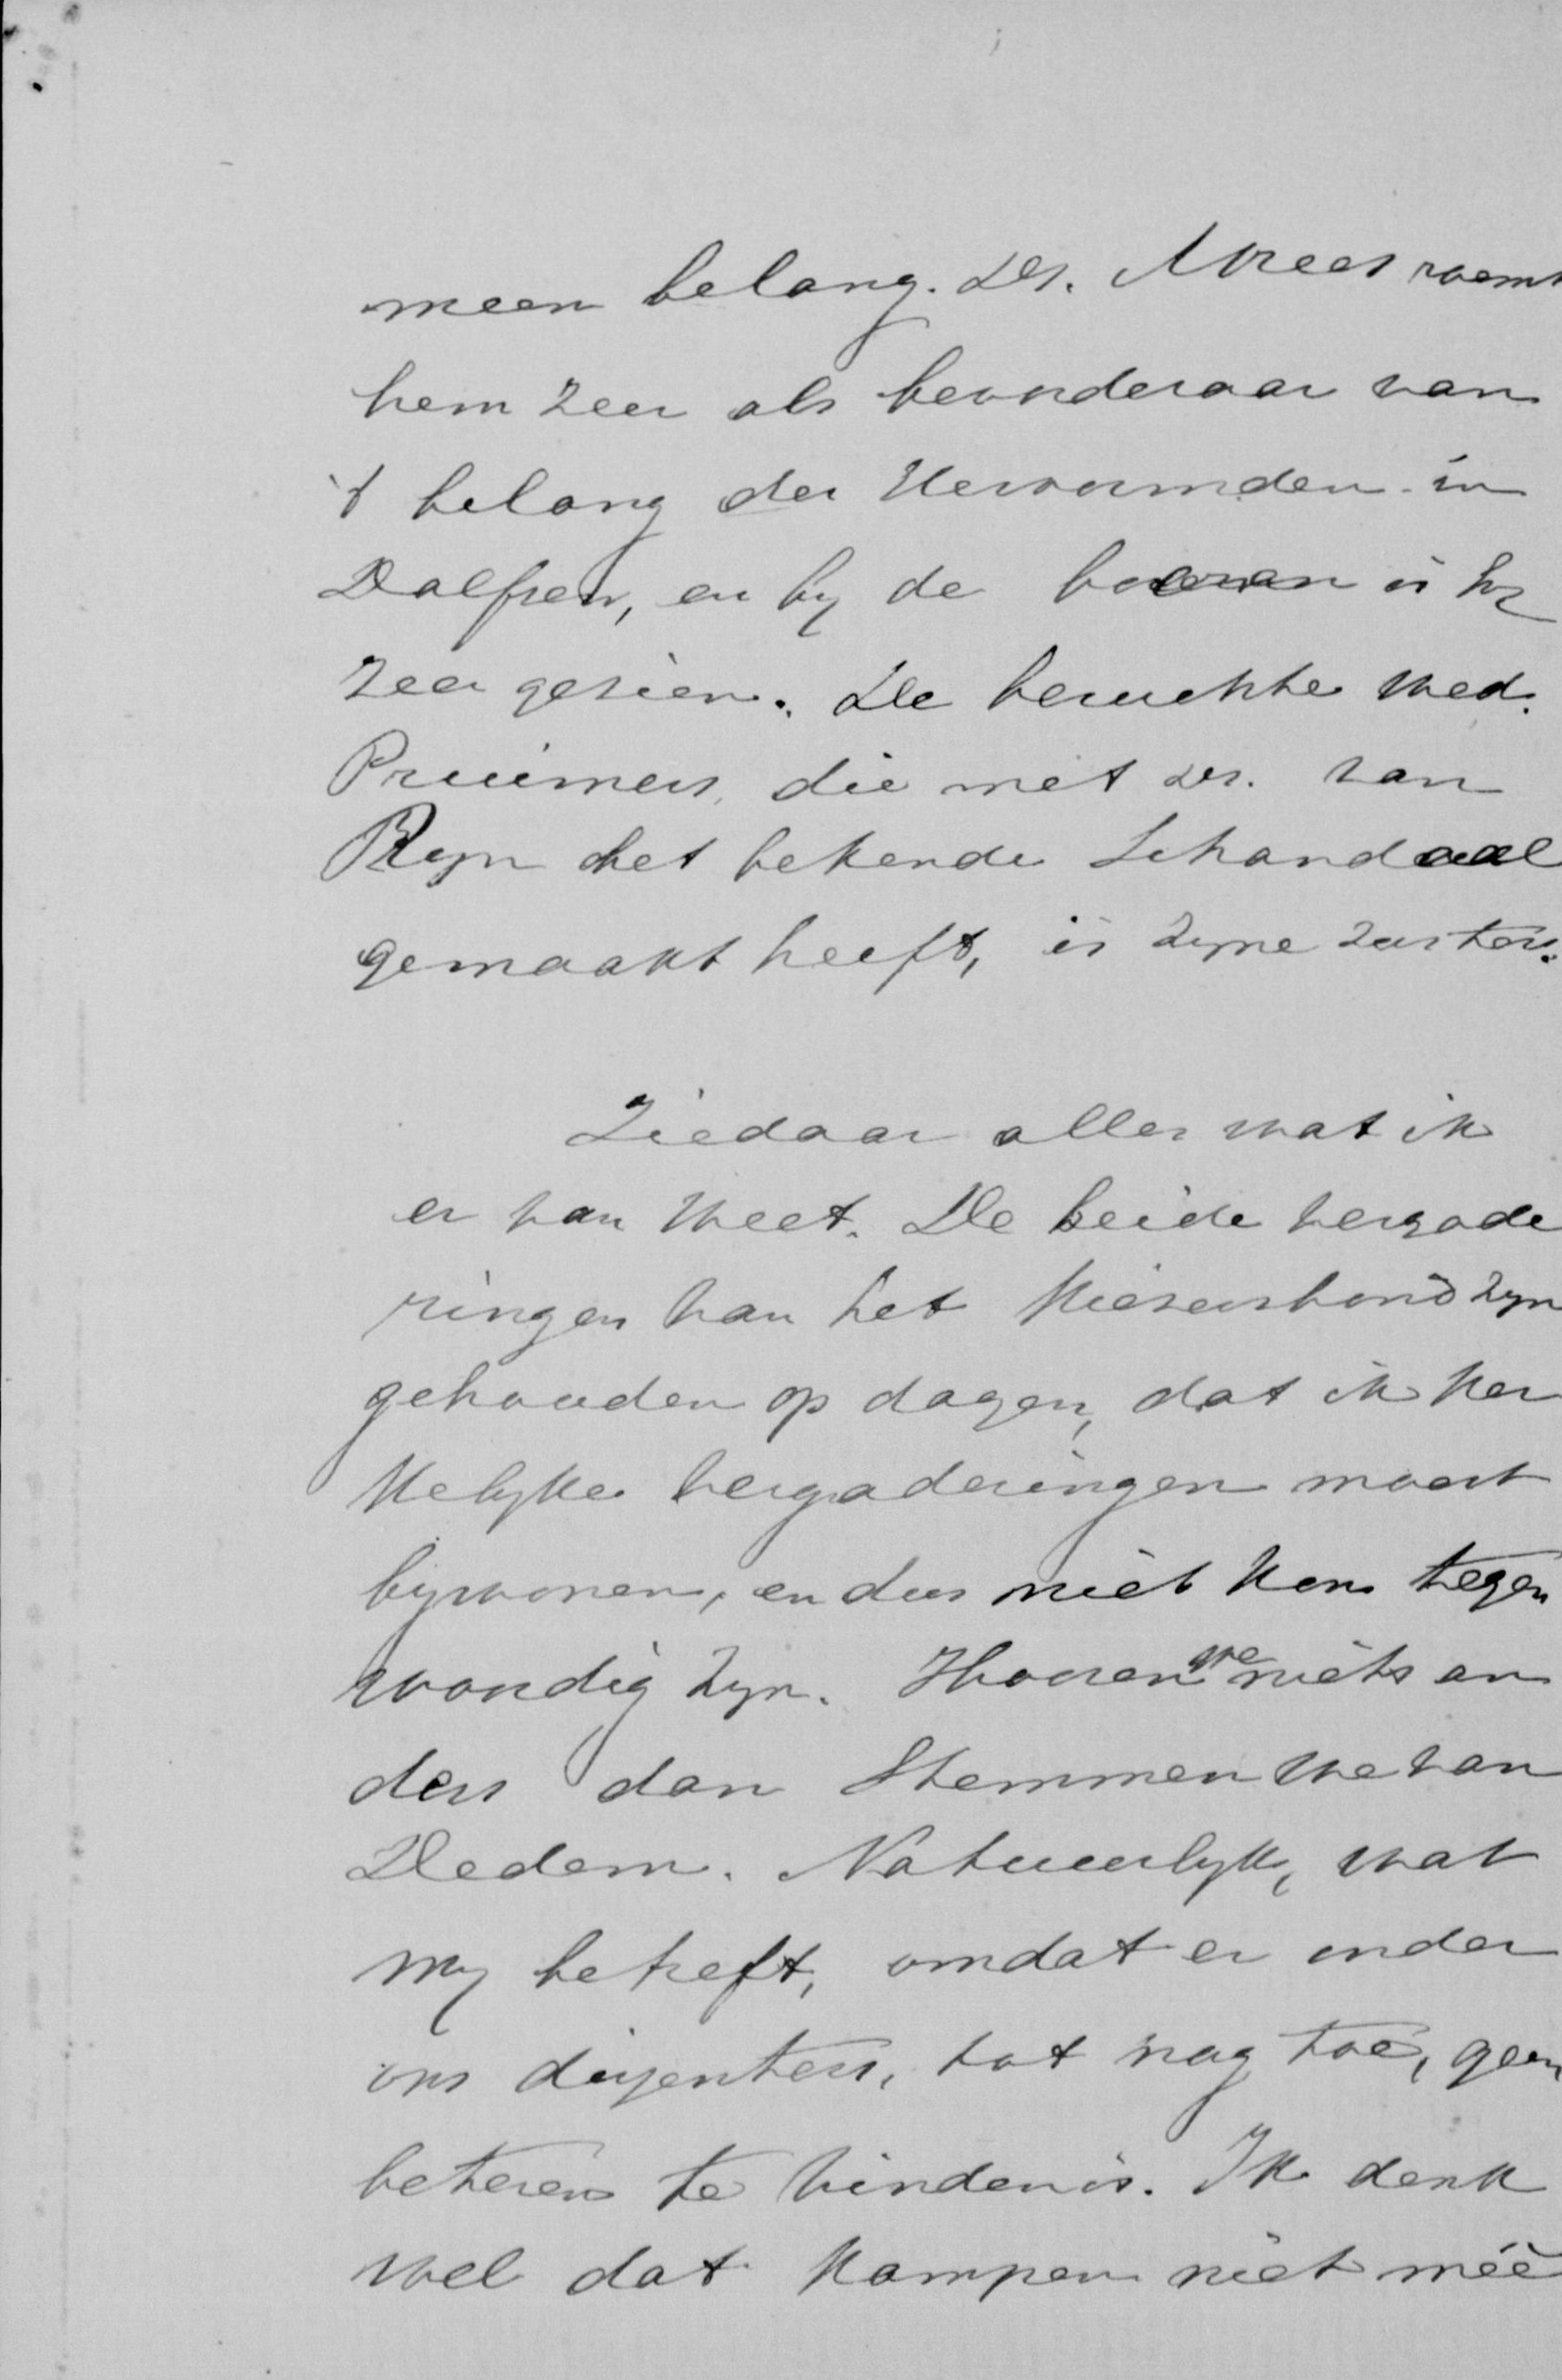 meen belang. Ds. Mees roemt
hem zeer als bevorderaar van
't belang der Hervormden in
Dalfsen, en by de boeren is hy
zeer gezien. De beruchte Wed.
Pruimers, die met Ds. van
Ryn het bekende Schandaal
gemaakt heeft, is zyne zuster.
Ziedaar alles wat ik
er van weet. De beide vergade
ringen van het Kiesersbond zyn
gehouden op dagen, dat ik ker
kelyke vergaderingen moest
bywonen, en dus niet kon tegen
woordig zyn. Hooren we niets an
ders dan Stemmen we van
Dedem. Natuurlyk, wat
my betreft, omdat er onder
ons dissenters, tot nog toe, geen
beteren te vinden is. Ik denk
wel dat Kampen niet méé